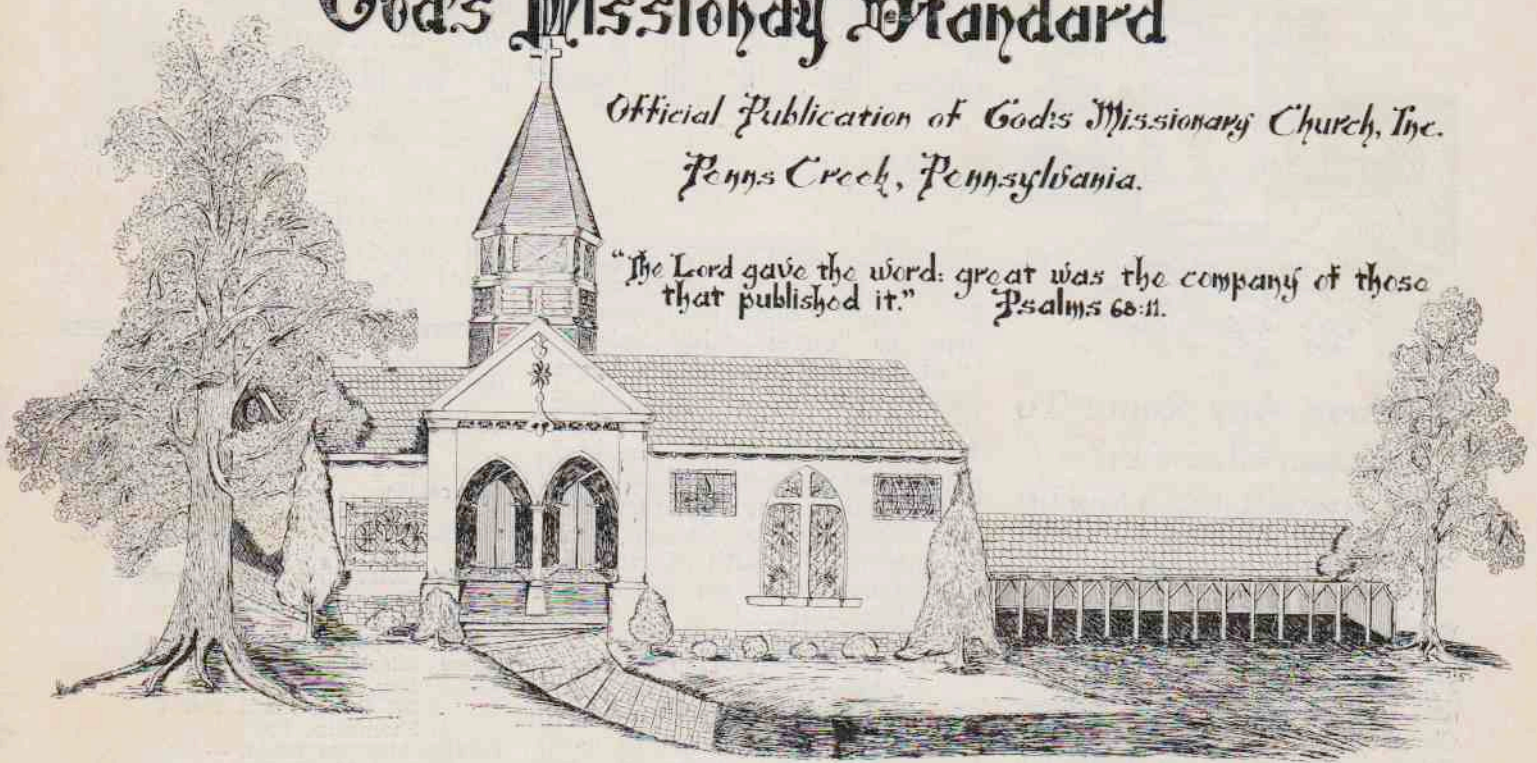 God's Missionay Standard
Official Publication of God's Missionary Church, Inc.
Penns Creek, Pennsylvania.
"The Lord gave the word: great was the company of those
that published it." Psalms 68:11.